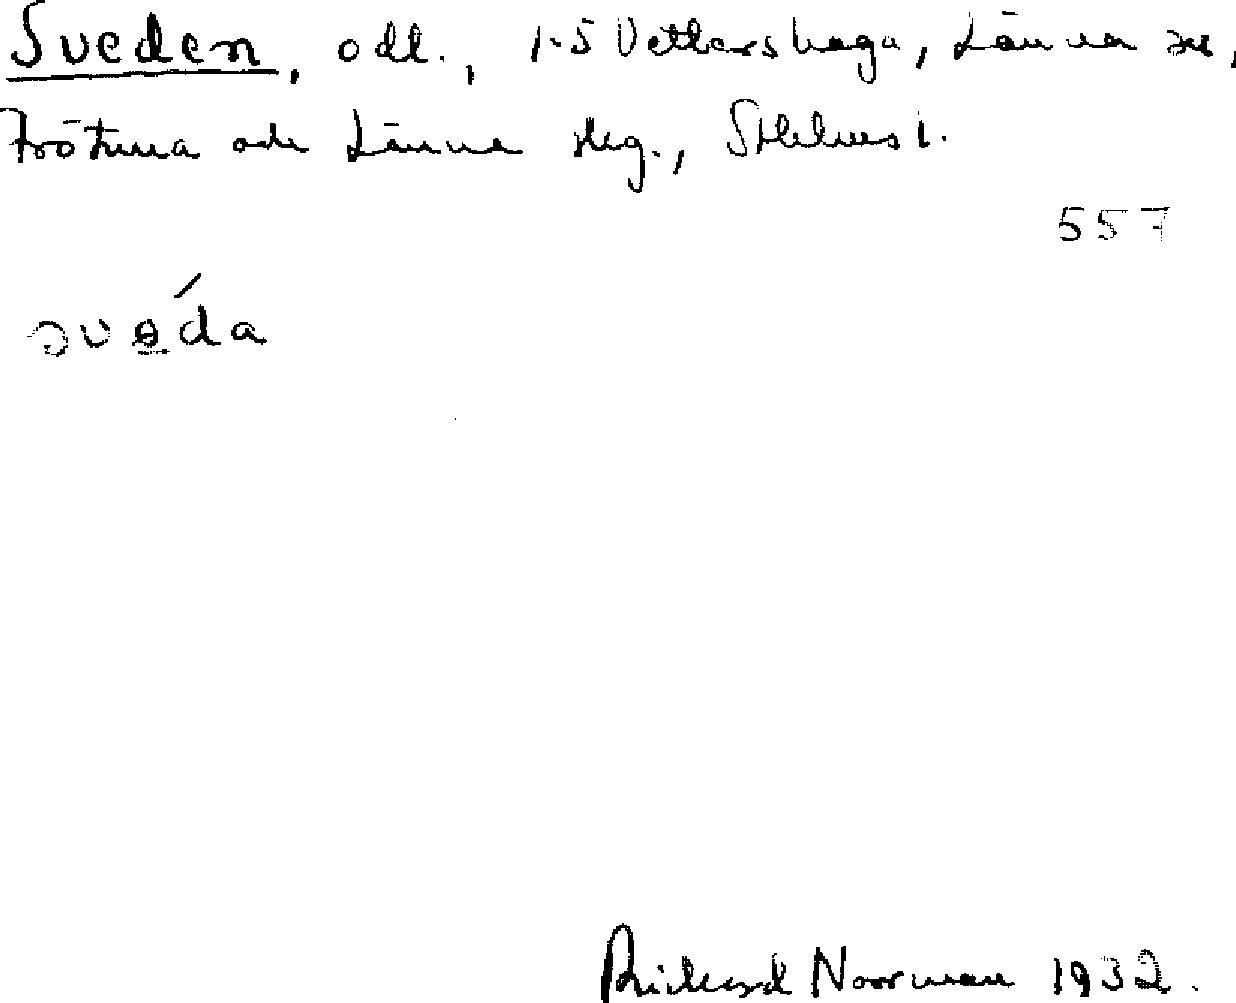 Sveden, odl., 1-5 Vettershaga, Länna sn,
Frötuna och Länna skg., Sthlms l.
557
svе̱́da
Richard Norrman 1932.